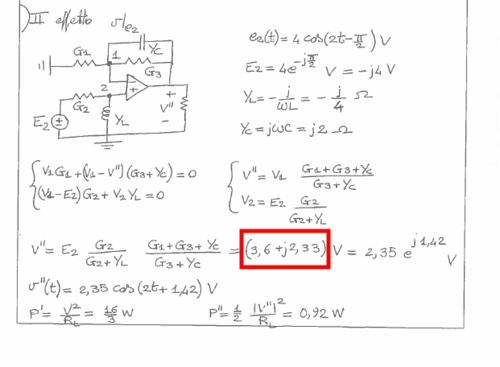 II effetto v/e2
G1
1
YC
G3
G2
2
E2
YL
+
V''
-
e2(t) = 4 cos(2t - π/2) V
E2 = 4e^-jπ/2 V = -j4 V
YL = -j/ωL = -j/4 Ω
YC = jωC = j2 Ω
{V1G1 + (V1 - V'')(G3 + YC) = 0
(V2 - E2)G2 + V2 YL = 0
{V'' = V1 (G1 + G3 + YC)/(G3 + YC)
V2 = E2 G2/(G2 + YL)
V'' = E2 G2/(G2 + YL) (G1 + G3 + YC)/(G3 + YC) = (3,6 + j2,33) V = 2,35 e^j1,42 V
v''(t) = 2,35 cos(2t + 1,42) V
P' = V²/RL = 16/3 W P'' = 1/2 |V''|²/RL = 0,92 W